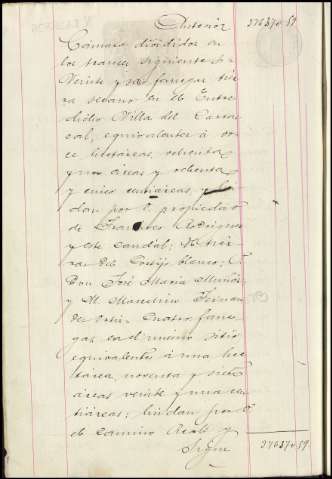 Anterior 37637 " 59
Cámara divididas en
los trances siguientes:
Veinte y seis fanegas tier
ra secano en el Cortijo
Villa del Carras
cal, equivalentes á on
ce hectáreas, ochenta
y nov áreas y ochenta
y cinco centiáreas, y lin
dan por O. propiedades
de Francisco Rodriguez
y este caudal; N. tier
ras del Cortijo blanco; E.
Don José María Muñoz
y M. Marcelino Fernan
dez Ortiz. Cuatro fane
gas, en el mismo sitio
equivalentes á una hec
tárea, noventa y siete
áreas veinte y una cen
tiáreas; lindan por O.
el camino Real y
Sigue 37637 " 59